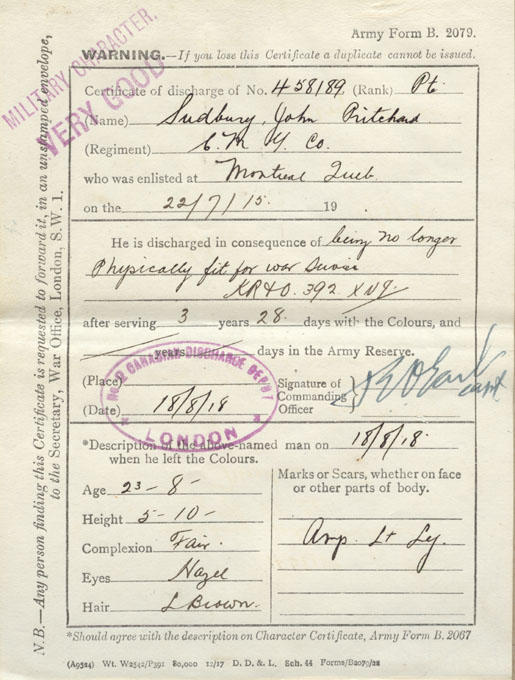 Army Form B. 2079.
MILITARY CHARACTER.
VERY GOOD
WARNING.—If you lose this Certificate a duplicate cannot be issued.
Certificate of discharge of No. 458189 (Rank) Pte
(Name) Sudbury, John Pritchard
(Regiment) C. M. G. Co.
who was enlisted at Montreal Queb.
on the 22/7/15 19
He is discharged in consequence of being no longer
Physically fit for war Service
KR&O. 392 XVI
after serving 3 years 28 days with the Colours, and
years days in the Army Reserve.
(Place)
(Date) 18/8/18
CANADIAN DISCHARGE DEPOT
LONDON
Signature of
Commanding
Officer
Capt
*Description of the above-named man on 18/8/18.
when he left the Colours.
Age 23 - 8 -
Height 5 - 10 -
Complexion Fair.
Eyes Hazel
Hair L Brown.
Marks or Scars, whether on face
or other parts of body.
Amp. Lt Leg.
*Should agree with the description on Character Certificate, Army Form B. 2067
(A9524) Wt. W2542/P391 80,000 12/17 D. D. & L. Sch. 44 Forms/B2079/22
N.B.—Any person finding this Certificate is requested to forward it, in an unstamped envelope,
to the Secretary, War Office, London, S.W. 1.